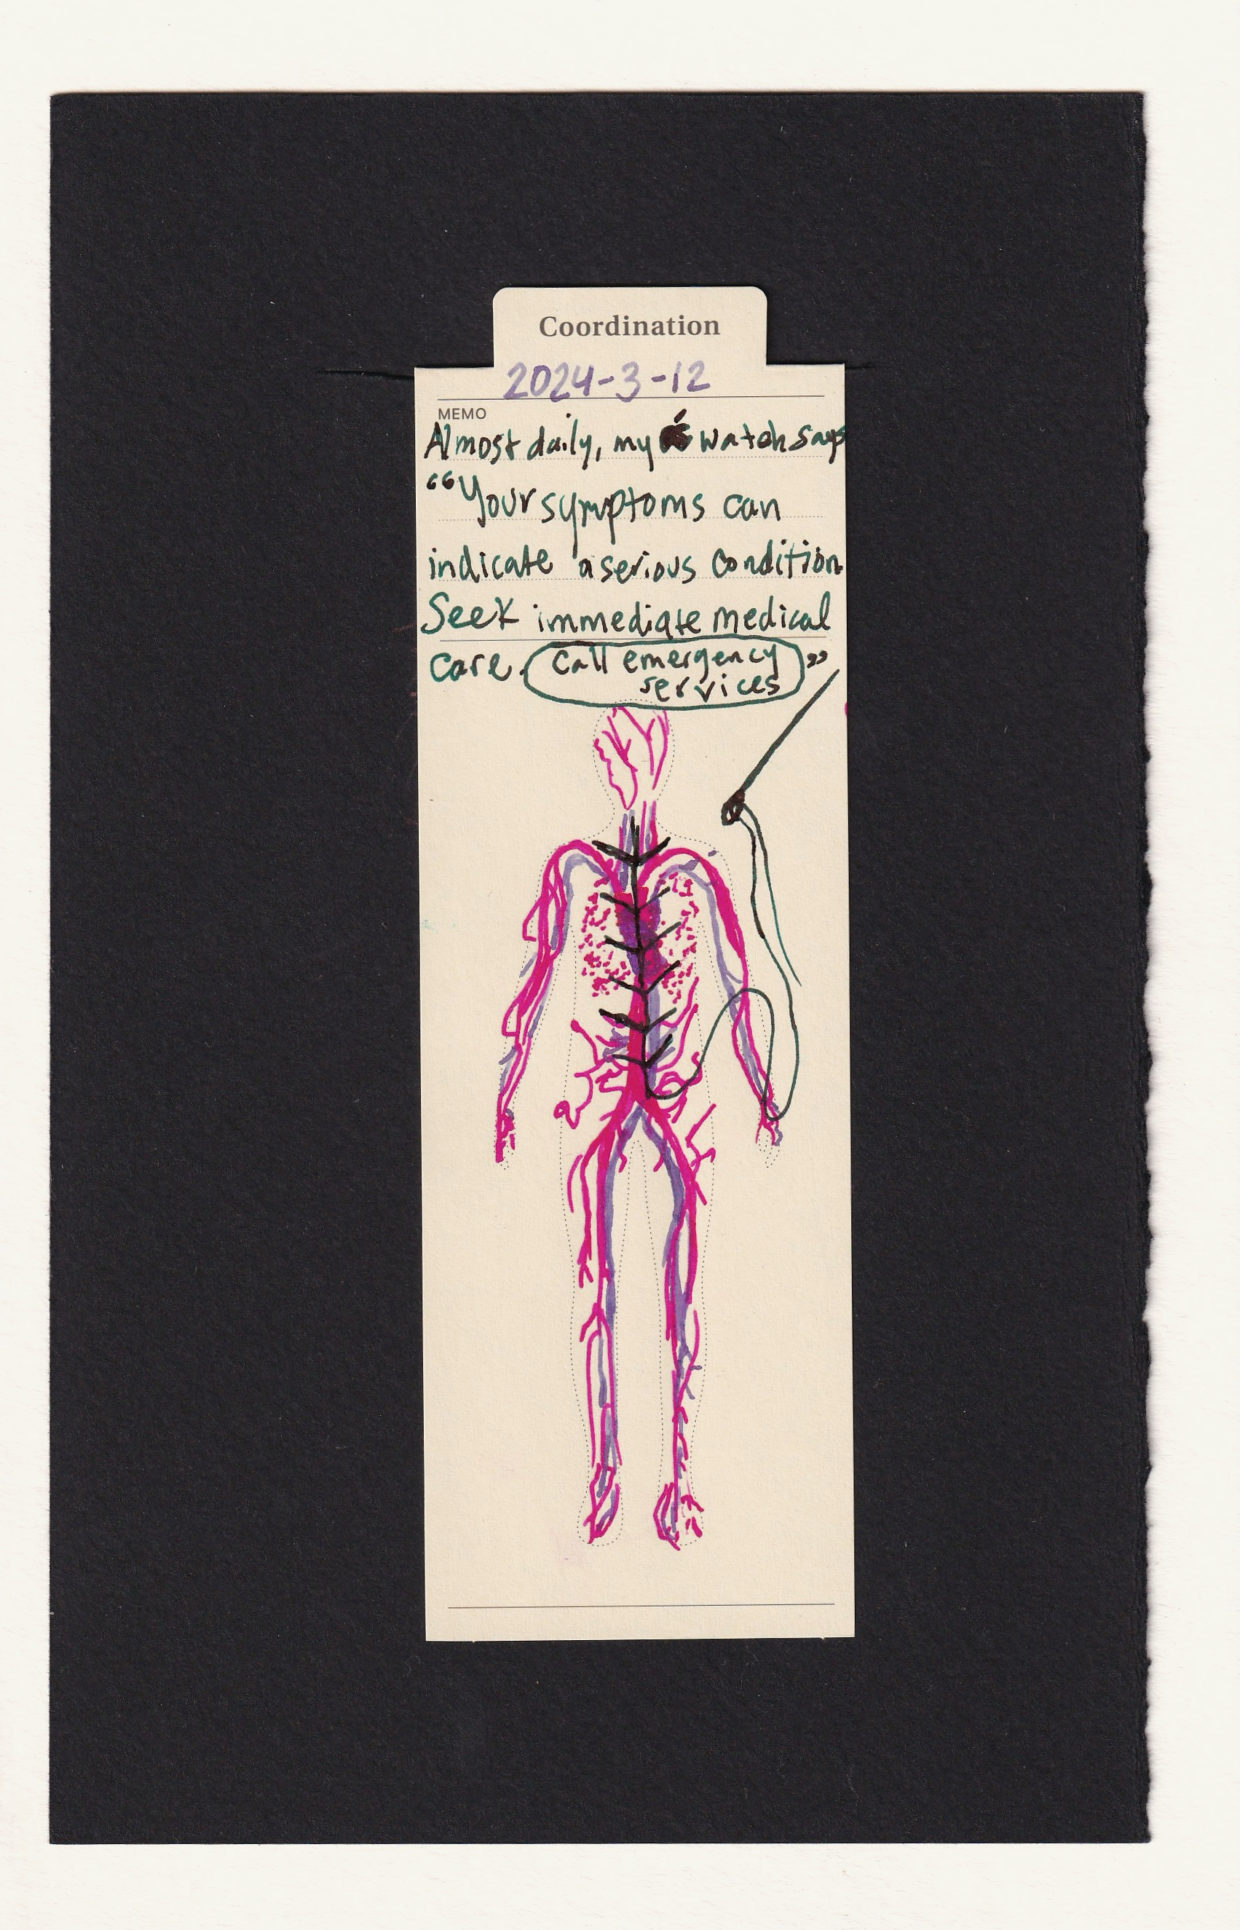 Coordination
2024-3-12
MEMO
Almost daily, my watch says
“Your symptoms can
indicate a serious condition.
Seek immediate medical
care. Call emergency
services”